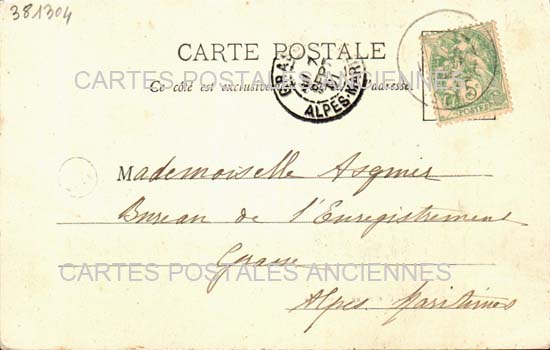 381304
CARTE POSTALE
CARTES POSTALES ANCIENNES
Ce côté est exclusivement adresse.
ALPES-MAR
POSTES
Mademoiselle Asquier
Bureau de l'Enregistrement
Grasse
CARTES POSTALES ANCIENNES
Alpes Maritimes